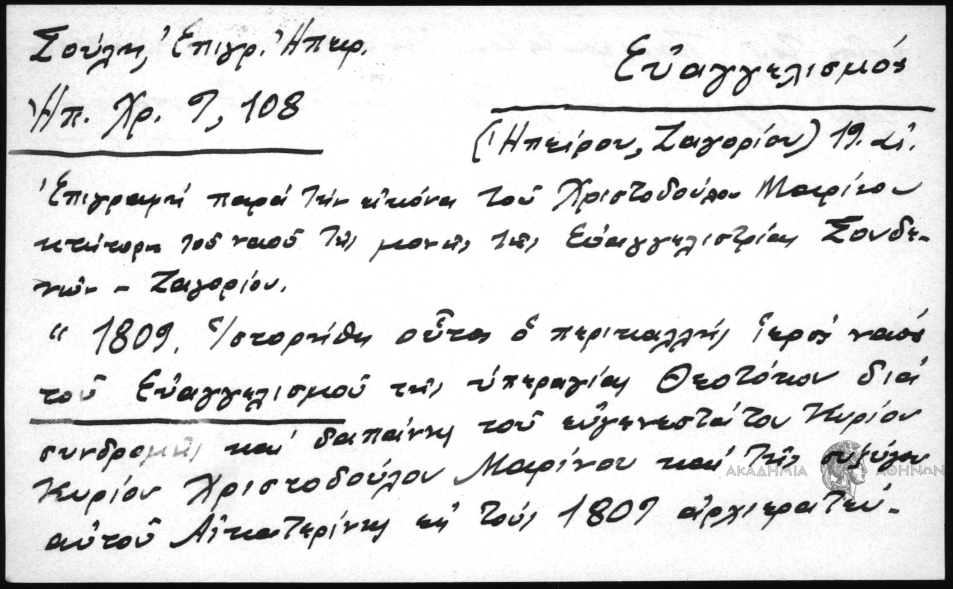 Σούλη, Ἐπιγρ. Ἠπειρ.
Ἠπ. Χρ. 9, 108
Εὐαγγελισμός
(Ἠπείρου, Ζαγορίου) 19. αἰ.
Ἐπιγραφή παρά τήν εἰκόνα τοῦ Χριστοδούλου Μαρίνου
κτίτορος τοῦ ναοῦ τῆς μονῆς τῆς Εὐαγγελιστρίας Σουδε-
νῶν - Ζαγορίου.
“ 1809. Ἱστορήθη οὗτος ὁ περικαλλής ἱερός ναός
τοῦ Εὐαγγελισμοῦ τῆς ὑπεραγίας Θεοτόκου διά
συνδρομῆς καί δαπάνης τοῦ εὐγενεστάτου Κυρίου
Κυρίου Χριστοδούλου Μαρίνου καί τῆς συζύγου
αὐτοῦ Αἰκατερίνης ἐν τούς 1809 ἀρχιερατεύ-
ΑΚΑΔΗΜΙΑ ΑΘΗΝΩΝ